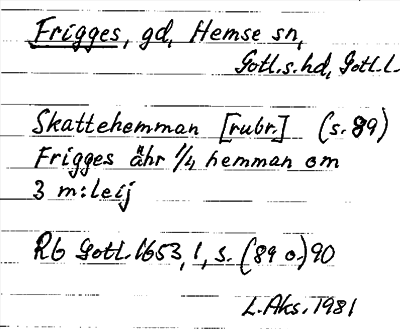 Frigges, gd, Hemse sn,
Gotl.s.hd, Gotl.l.
Skattehemman [rubr.] (s. 89)
Frigges ähr 1/4 hemman om
3 m:leij
Rb Gotl. 1653, 1, s. (89 o.) 90
L. Aks. 1981